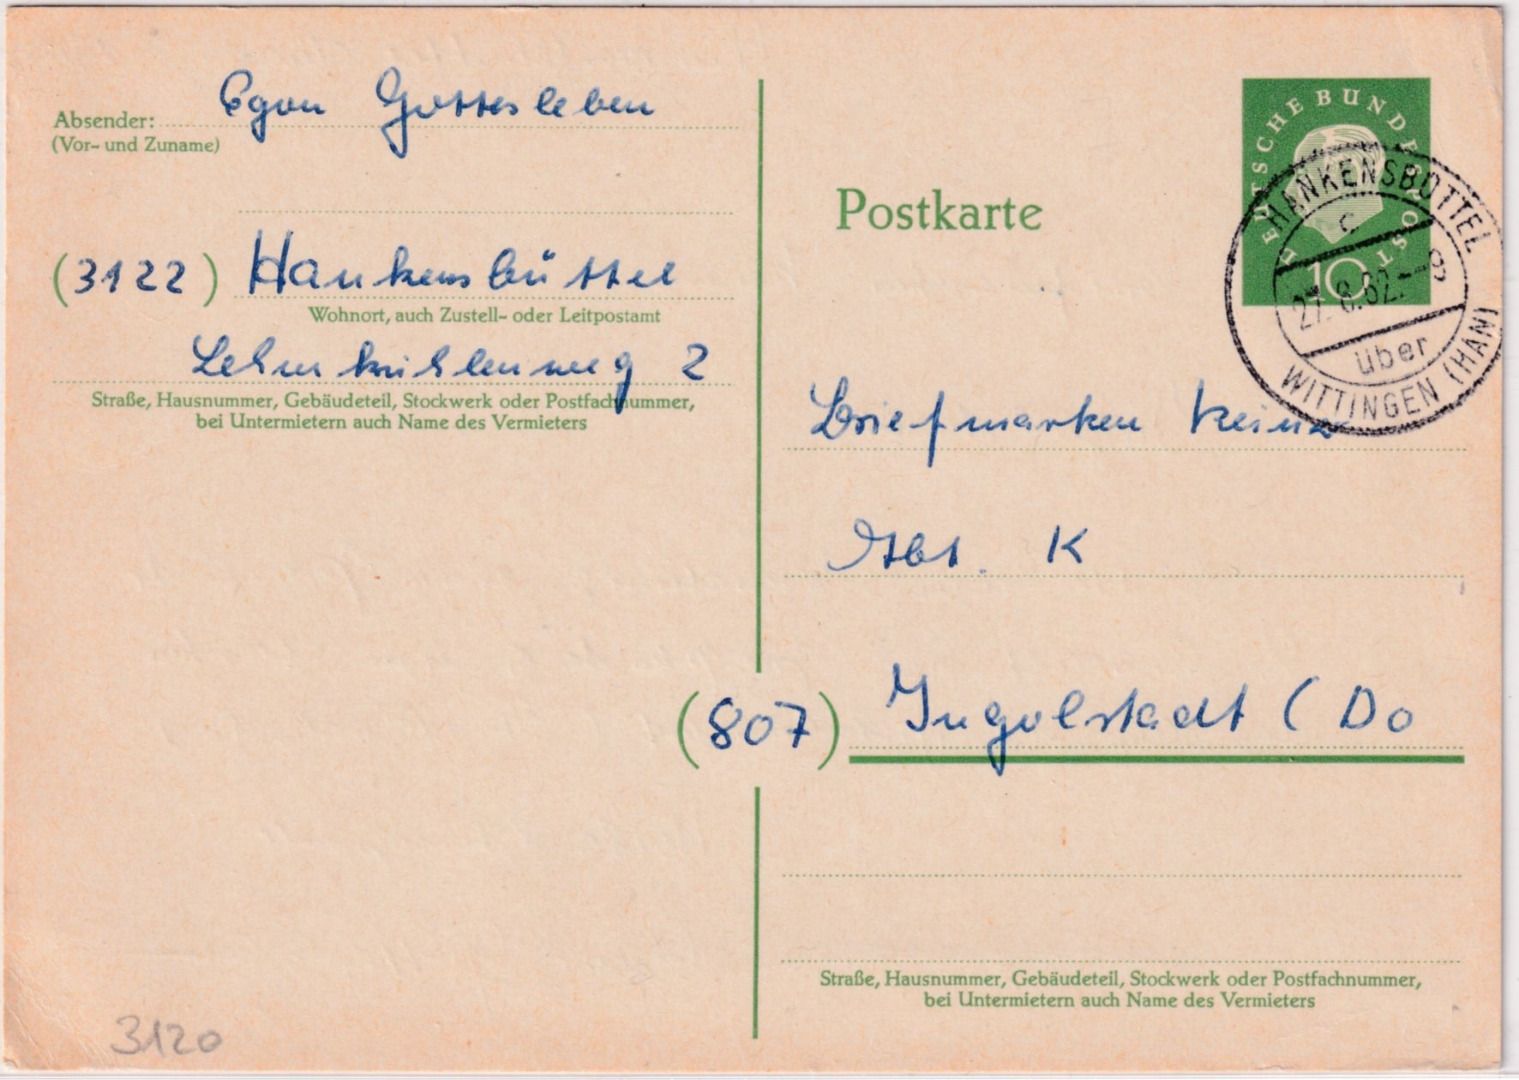 Absender: Egon Gottesleben
(Vor- und Zuname)
(3122) Hankensbüttel
Wohnort, auch Zustell- oder Leitpostamt
Lehmkuhlenweg 2
Straße, Hausnummer, Gebäudeteil, Stockwerk oder Postfachnummer,
bei Untermietern auch Name des Vermieters
Postkarte
DEUTSCHE BUNDESPOST
10
HANKENSBÜTTEL
c
27.8.62.-8
über
WITTINGEN (HAN)
Briefmarken Keinz
Abt. K
(807) Ingolstadt (Do
Straße, Hausnummer, Gebäudeteil, Stockwerk oder Postfachnummer,
bei Untermietern auch Name des Vermieters
3120